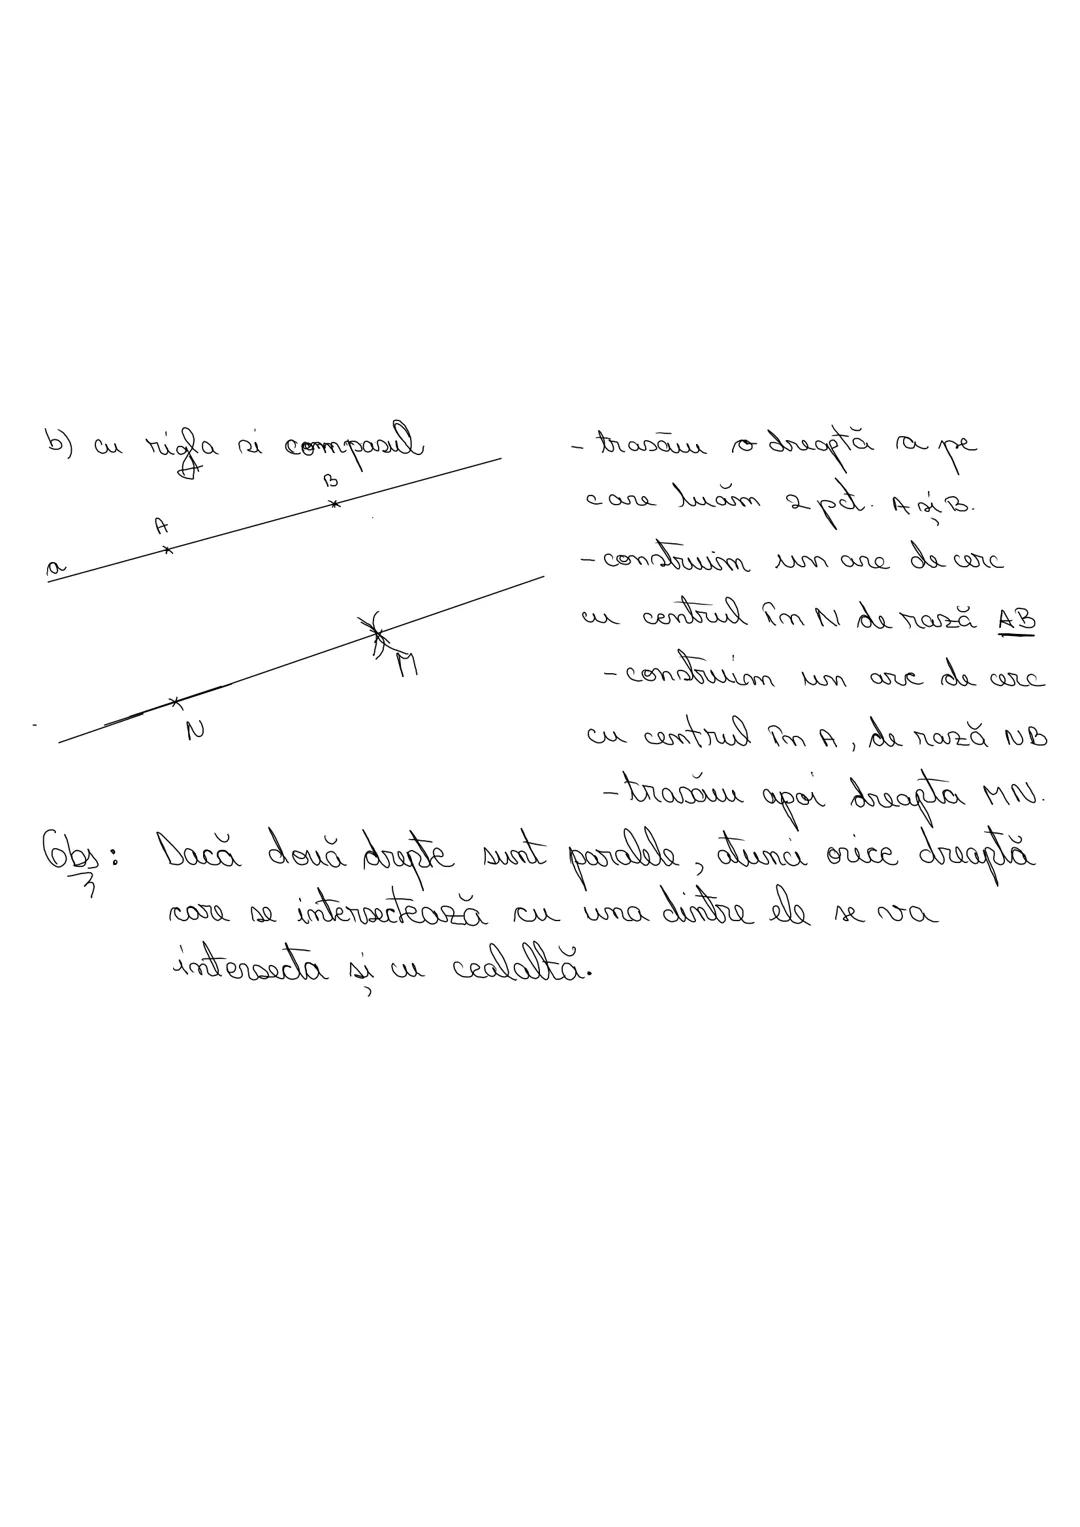 b) cu rigla si compasul
B
A
a
M
N
- trasăm o dreaptă a pe
care luăm 2 pct. A și B.
- construim un arc de cerc
cu centrul în N de rază AB
- construim un arc de cerc
cu centrul în A, de rază NB
- trasăm apoi dreapta MN.
Obs: Dacă două drepte sunt paralele, atunci orice dreaptă
3
care se intersectează cu una dintre ele se va
intersecta și cu cealaltă.